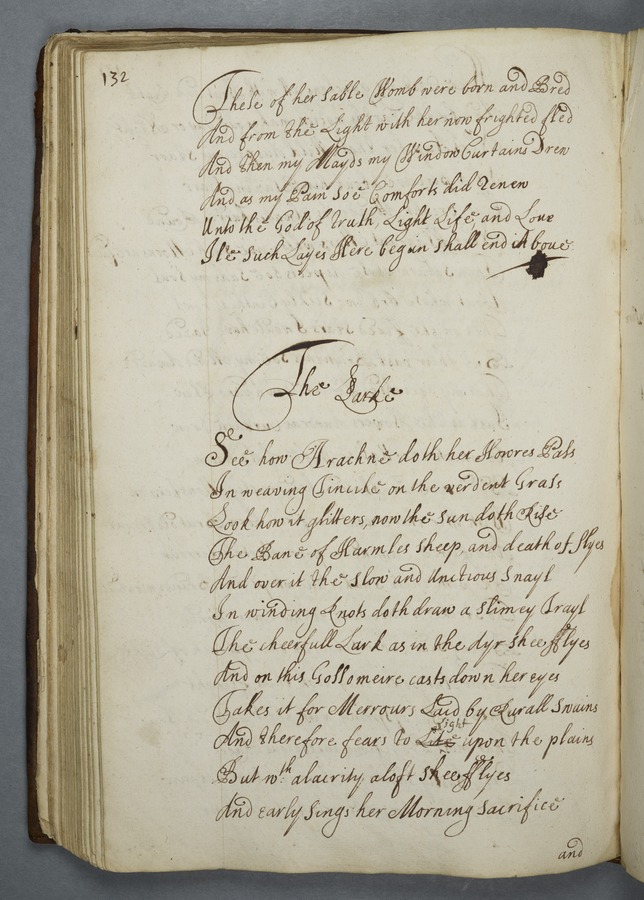 132
These of her sable Womb were born and Bred
And from the Light with her now frighted fled
And then my Mayds my Window Curtains Drew
And as my Pain soe Comforts did Renew
Unto the God of truth, Light Life and Love
I'le such Layes Here begun shall end Above
The Larke
See how Arachne doth her Howres Pass
In weaving on the verdent Grass
Look how it glitters, now the sun doth Rise
The Bane of Harmles sheep, and death of flyes
And over it the slow and Unctious Snayl
In winding Knots doth draw a slimey Trayl
The cheerfull Lark as in the Ayr shee fflyes
And on this Gossomeire casts down her eyes
Takes it for Merrours Laid by Rurall Swains
And therefore fears to Lite Light upon the plains
But wth alacrity aloft shee fflyes
And early sings her Morning sacrifice
and